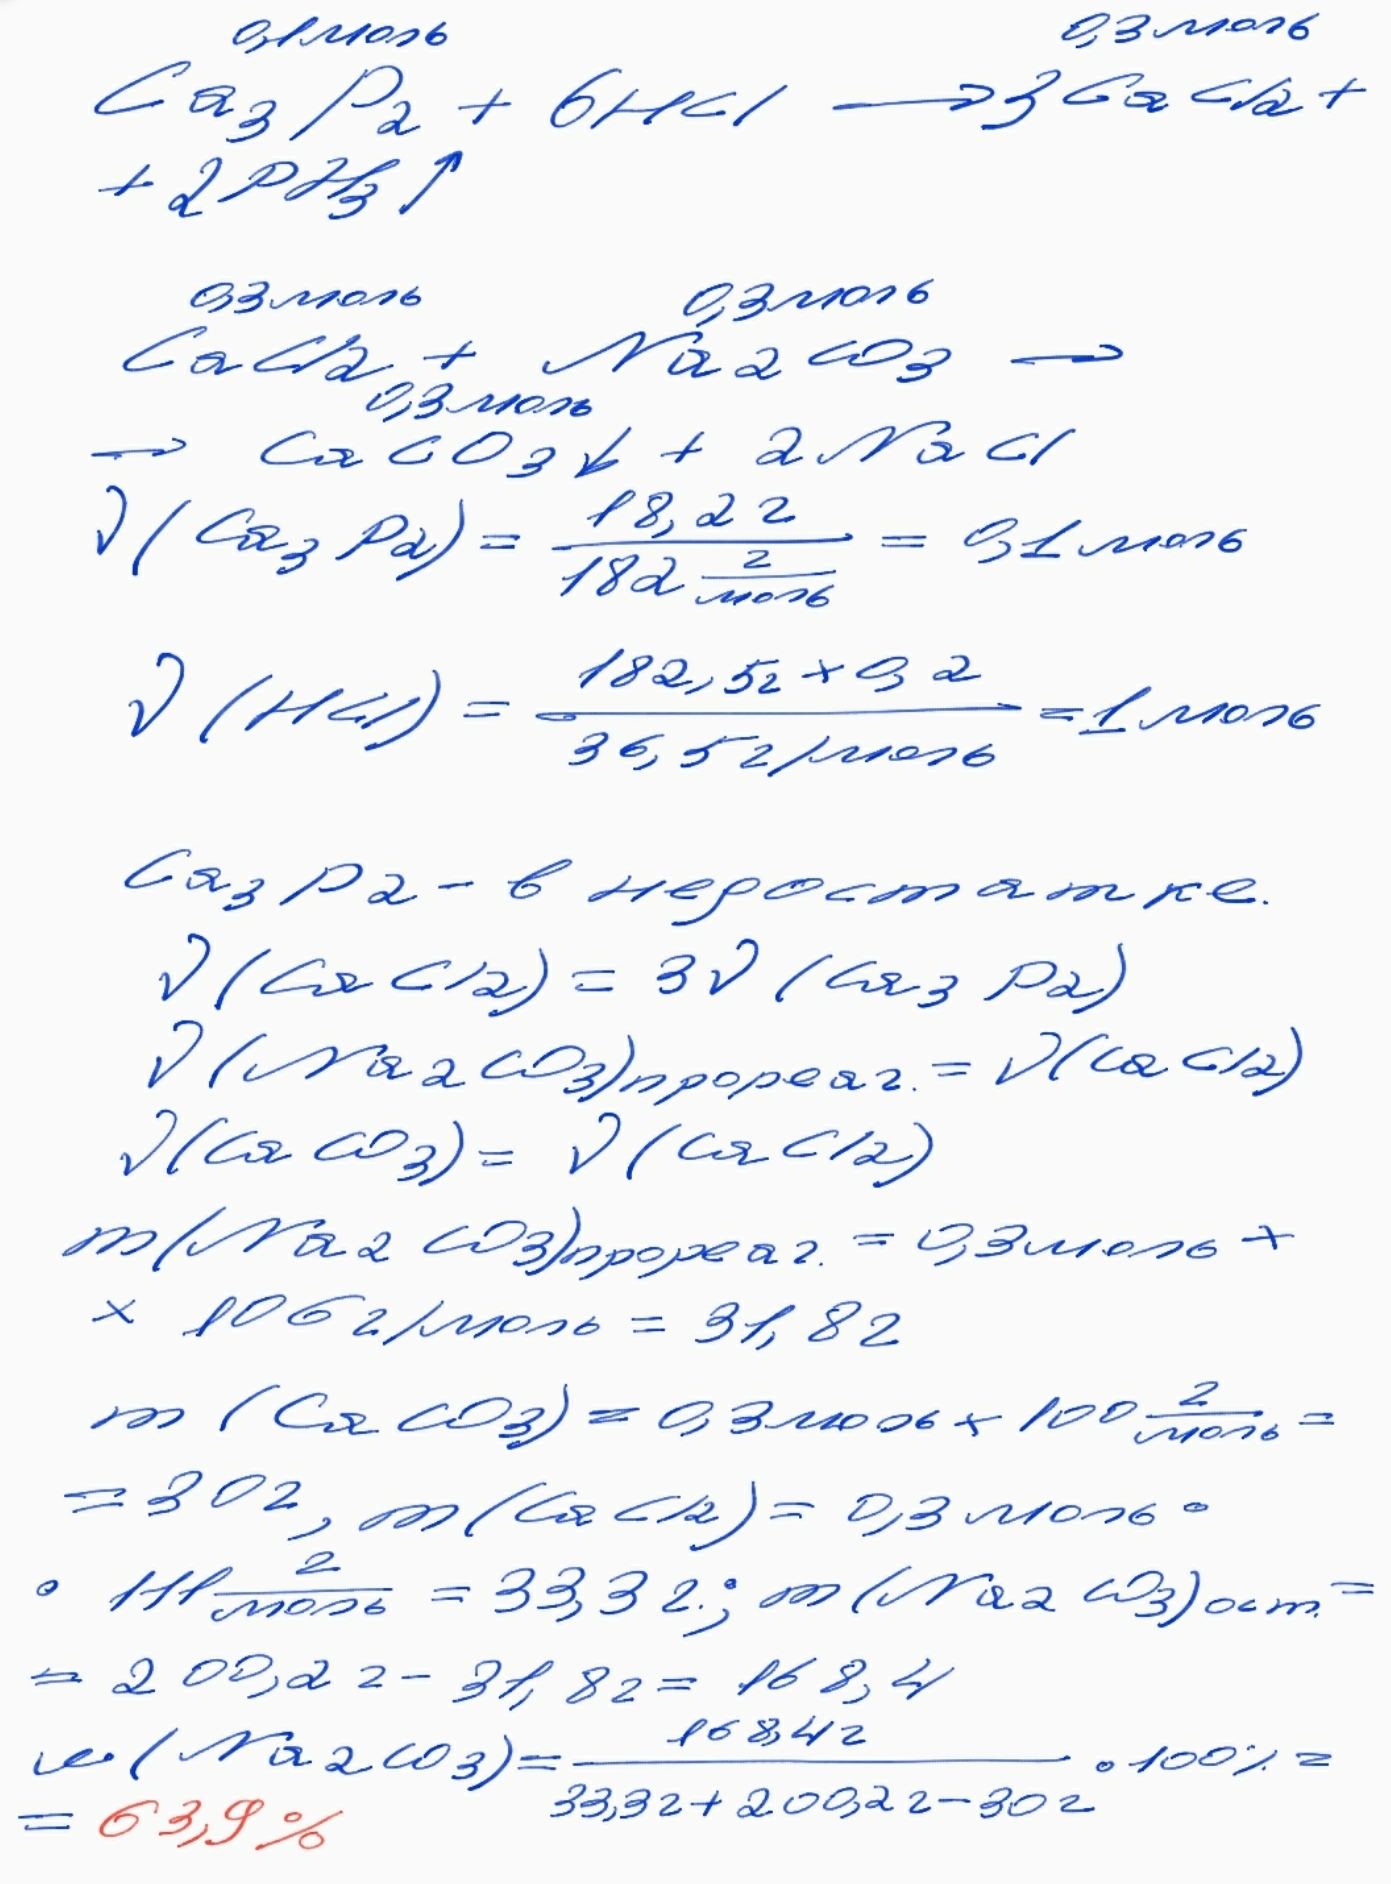 0,1моль 0,3моль
Ca₃P₂ + 6HCl ⟶ 3CaCl₂ +
+ 2PH₃↑
0,3моль 0,3моль
CaCl₂ + Na₂CO₃ →
0,3моль
→ CaCO₃↓ + 2NaCl
ν(Ca₃P₂) = 18,2г / 182 г/моль = 0,1моль
ν(HCl) = 182,5г × 0,2 / 36,5г/моль = 1моль
Ca₃P₂ - в недостатке.
ν(CaCl₂) = 3ν(Ca₃P₂)
ν(Na₂CO₃)прореаг. = ν(CaCl₂)
ν(CaCO₃) = ν(CaCl₂)
m(Na₂CO₃)прореаг. = 0,3моль ×
× 106г/моль = 31,8г
m(CaCO₃) = 0,3моль × 100 г/моль =
= 30г, m(CaCl₂) = 0,3моль ·
· 111 г/моль = 33,3г.; m(Na₂CO₃)ост. =
= 200,2г - 31,8г = 168,4
w(Na₂CO₃) = 168,4г / 33,3г + 200,2г - 30г · 100% =
= 63,9%